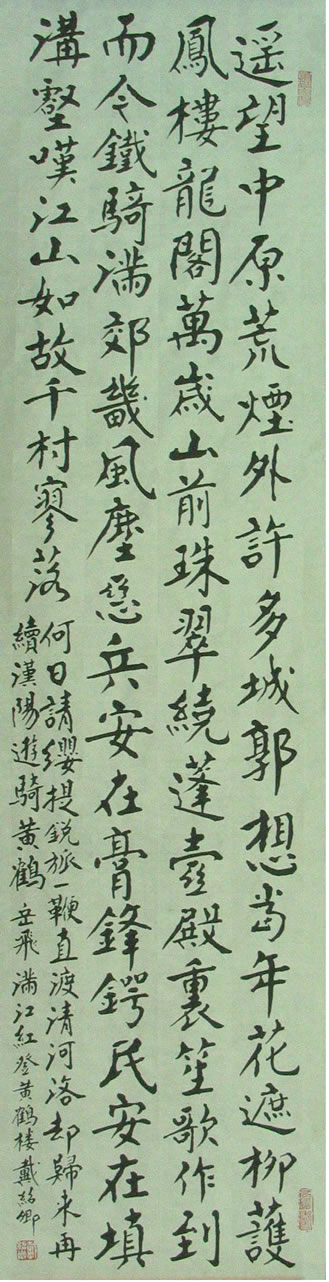 遥望中原荒煙外許多城郭想當年花遮柳護
鳳樓龍閣萬歲山前珠翠繞蓬壺殿裏笙歌作到
而今鐵騎滿郊畿風塵惡兵安在膏鋒鍔民安在填
溝壑嘆江山如故千村寥落
何日請纓提銳旅一鞭直渡清河洛却歸來再
續漢陽遊騎黃鶴 岳飛滿江紅登黃鶴樓戴